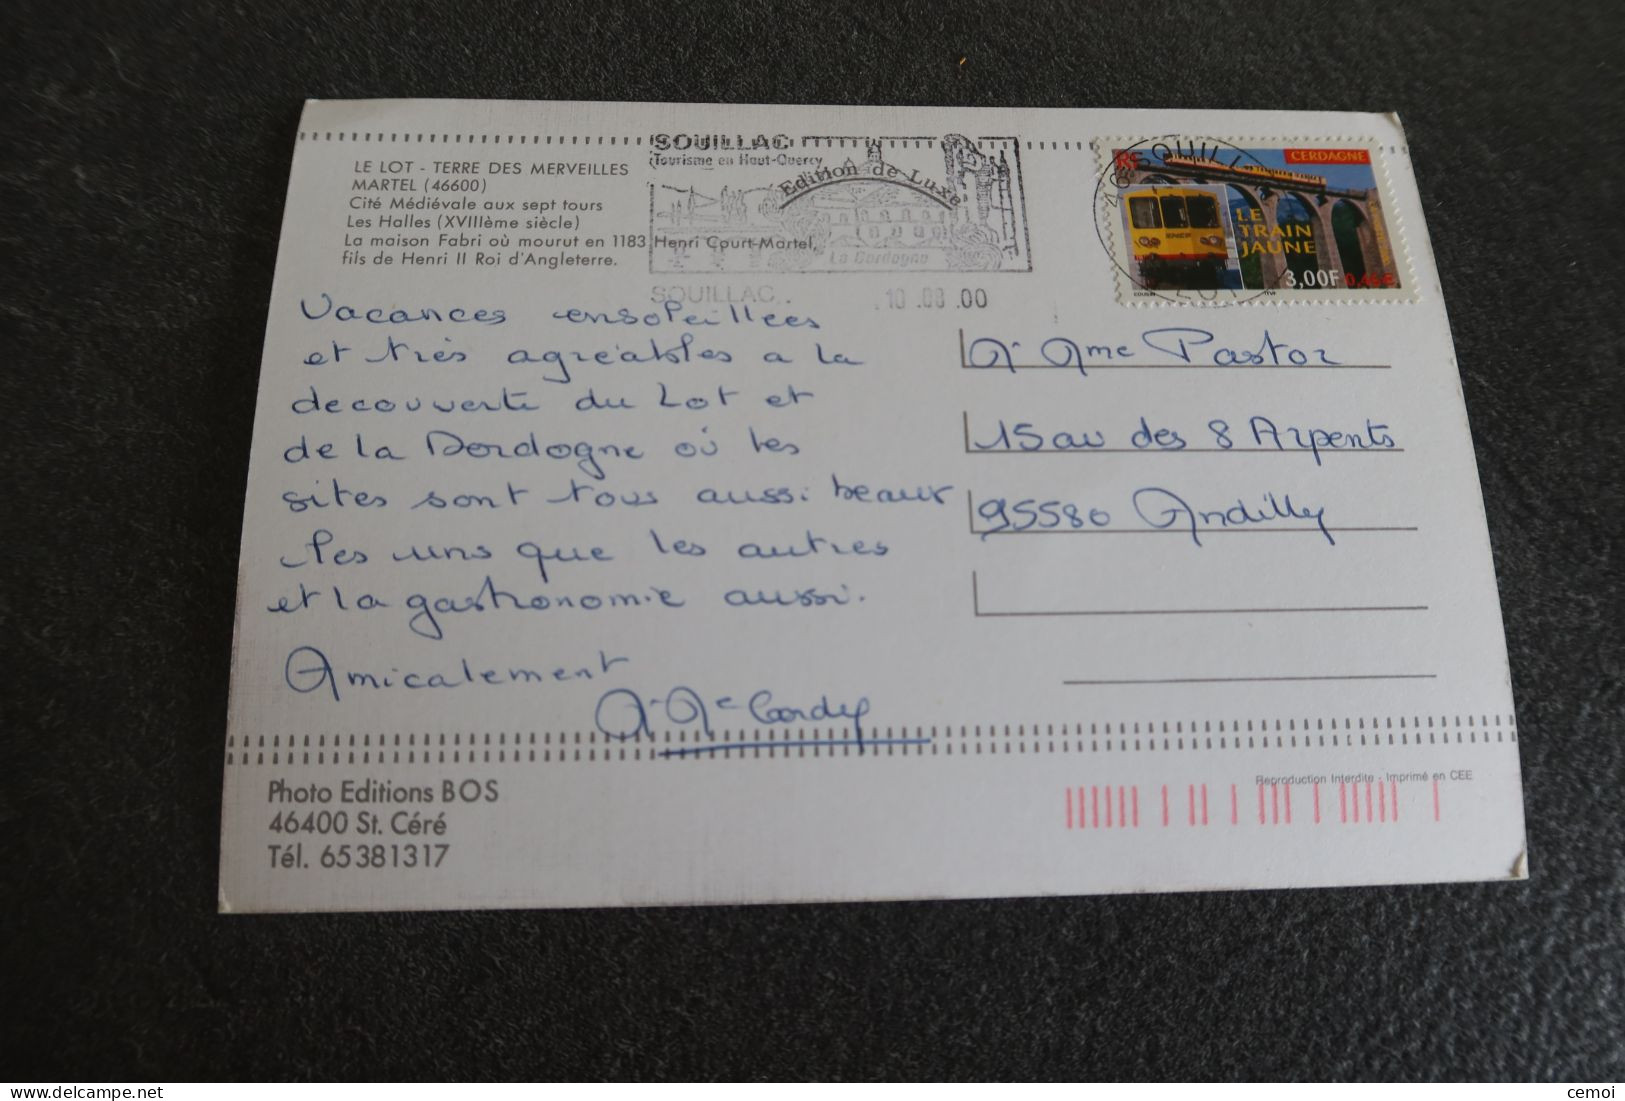 LE LOT - TERRE DES MERVEILLES
MARTEL (46600)
Cité Médiévale aux sept tours
Les Halles (XVIIIème siècle)
La maison Fabri où mourut en 1183 Henri Court-Martel,
fils de Henri II Roi d'Angleterre.
SOUILLAC
Tourisme en Haut-Quercy
Edition de Luxe
La Dordogne
SOUILLAC
10.08.00
46 SOUILLAC
LOT
RF
CERDAGNE
LE
TRAIN
JAUNE
3,00F 0,46€
Vacances ensoleillées
et très agréables a la
decouverte du Lot et
de la Dordogne où les
sites sont tous aussi beaux
les uns que les autres
et la gastronomie aussi.
Amicalement
Mr Mme Pastor
15 av des 8 Arpents
95580 Andilly
Photo Editions BOS
46400 St. Céré
Tél. 65381317
Reproduction Interdite - Imprimé en CEE
cemoi